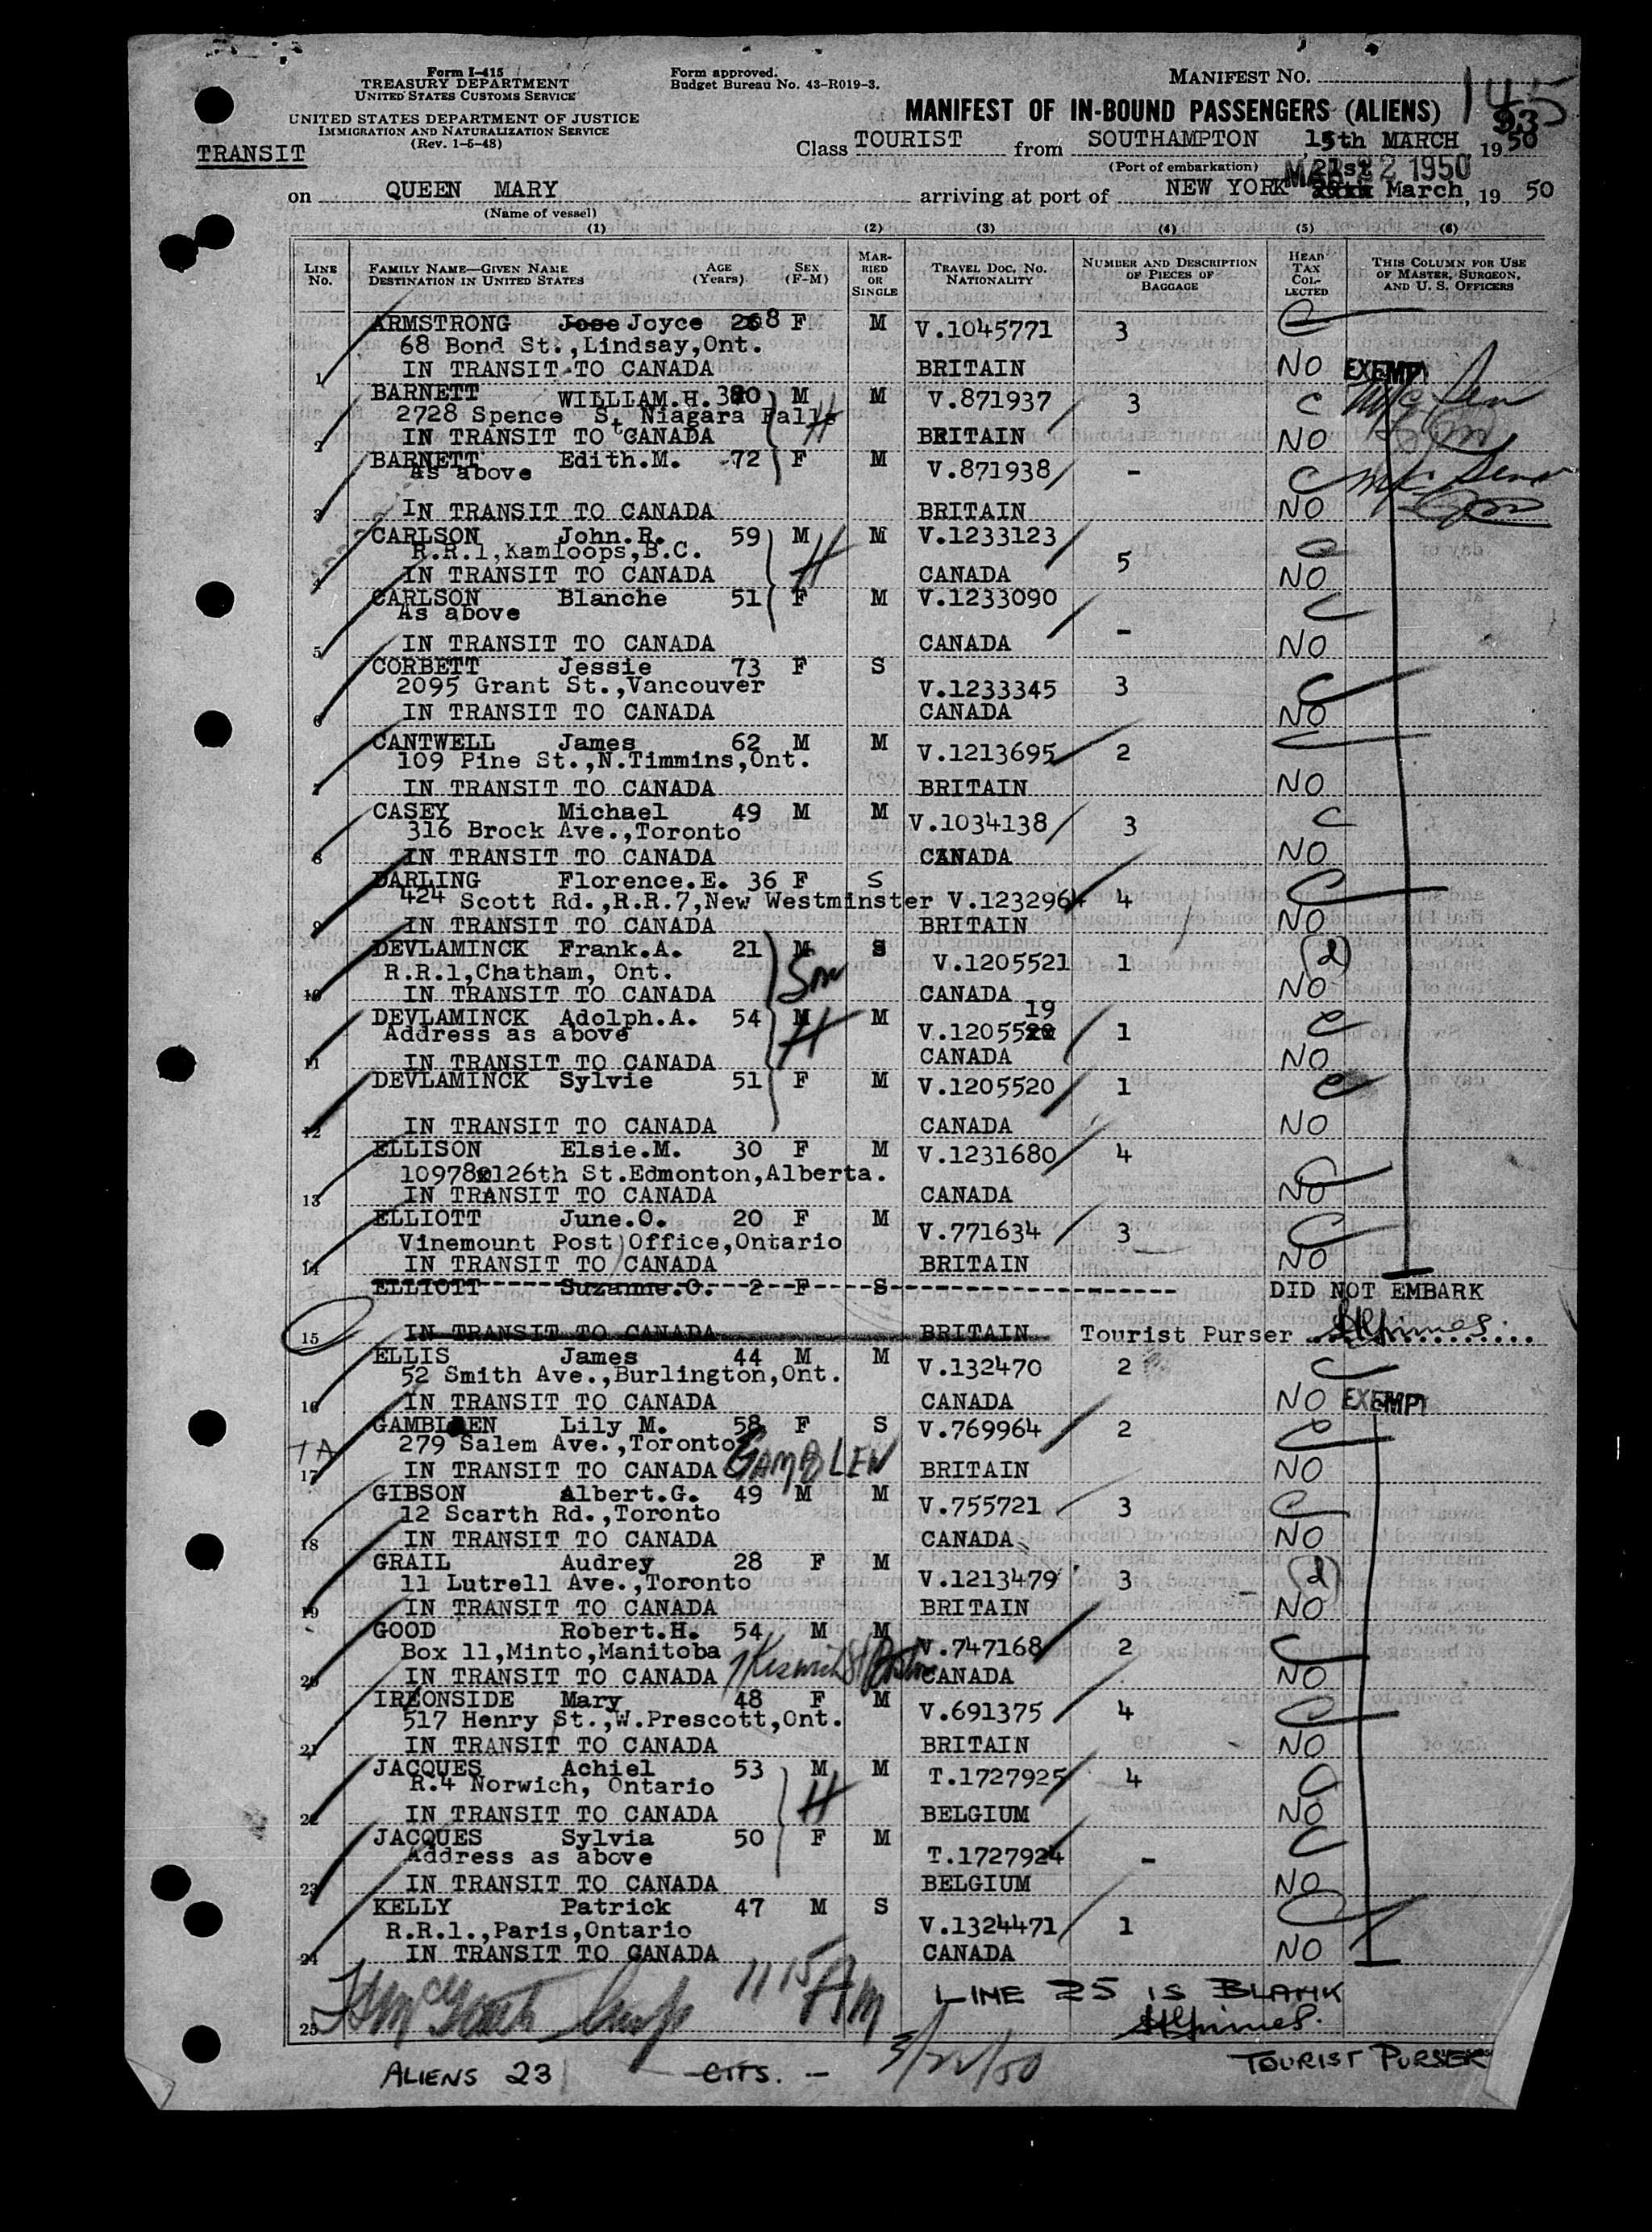 Form I-415
TREASURY DEPARTMENT
UNITED STATES CUSTOMS SERVICE
UNITED STATES DEPARTMENT OF JUSTICE
IMMIGRATION AND NATURALIZATION SERVICE
(Rev. 1-5-48)
TRANSIT
Form approved.
Budget Bureau No. 43-R019-3.
MANIFEST NO.
145
93
MANIFEST OF IN-BOUND PASSENGERS (ALIENS)
Class TOURIST from SOUTHAMPTON 15th MARCH 1950
(Port of embarkation)
MAR 22 1950
21st
on QUEEN MARY arriving at port of NEW YORK March, 19 50
(Name of vessel)
(1) (2) (3) (4) (5) (6)
LINE No. FAMILY NAME—GIVEN NAME DESTINATION IN UNITED STATES AGE (Years) SEX (F-M) MARRIED OR SINGLE TRAVEL DOC. NO. NATIONALITY NUMBER AND DESCRIPTION OF PIECES OF BAGGAGE HEAD TAX COLLECTED THIS COLUMN FOR USE OF MASTER, SURGEON, AND U. S. OFFICERS
ARMSTRONG Jose Joyce 28 F M V.1045771 3 C
68 Bond St.,Lindsay,Ont.
1 IN TRANSIT TO CANADA BRITAIN NO EXEMPT
BARNETT WILLIAM.H. 80 M M V.871937 3 C
2728 Spence St Niagara Falls H
2 IN TRANSIT TO CANADA BRITAIN NO
BARNETT Edith.M. 72 F M V.871938 - C
As above
3 IN TRANSIT TO CANADA BRITAIN NO
CARLSON John.R. 59 M M V.1233123 5 C
R.R.1,Kamloops,B.C. H
4 IN TRANSIT TO CANADA CANADA NO
CARLSON Blanche 51 F M V.1233090 - C
As above
5 IN TRANSIT TO CANADA CANADA NO
CORBETT Jessie 73 F S V.1233345 3 C
2095 Grant St.,Vancouver
6 IN TRANSIT TO CANADA CANADA NO
CANTWELL James 62 M M V.1213695 2 C
109 Pine St.,N.Timmins,Ont.
7 IN TRANSIT TO CANADA BRITAIN NO
CASEY Michael 49 M M V.1034138 3 C
316 Brock Ave.,Toronto
8 IN TRANSIT TO CANADA CANADA NO
DARLING Florence.E. 36 F S C
424 Scott Rd.,R.R.7,New Westminster V.1232964 4
9 IN TRANSIT TO CANADA BRITAIN NO
DEVLAMINCK Frank.A. 21 M S V.1205521 1 (2)
R.R.1,Chatham, Ont. Son
10 IN TRANSIT TO CANADA CANADA NO
DEVLAMINCK Adolph.A. 54 M M V.120552219 1 C
Address as above H
11 IN TRANSIT TO CANADA CANADA NO
DEVLAMINCK Sylvie 51 F M V.1205520 1 C
12 IN TRANSIT TO CANADA CANADA NO
ELLISON Elsie.M. 30 F M V.1231680 4 C
10978 126th St.Edmonton,Alberta.
13 IN TRANSIT TO CANADA CANADA NO
ELLIOTT June.O. 20 F M V.771634 3 C
Vinemount Post Office,Ontario
14 IN TRANSIT TO CANADA BRITAIN NO
ELLIOTT Suzanne.O. 2 F S DID NOT EMBARK
15 IN TRANSIT TO CANADA BRITAIN Tourist Purser
ELLIS James 44 M M V.132470 2 C
52 Smith Ave.,Burlington,Ont.
16 IN TRANSIT TO CANADA CANADA NO EXEMPT
GAMBLEN Lily M. 58 F S V.769964 2 C
279 Salem Ave.,Toronto
TA 17 IN TRANSIT TO CANADA GAMBLEN BRITAIN NO
GIBSON Albert.G. 49 M M V.755721 3 C
12 Scarth Rd.,Toronto
18 IN TRANSIT TO CANADA CANADA NO
GRAIL Audrey 28 F M V.1213479 3 (2)
11 Lutrell Ave.,Toronto
19 IN TRANSIT TO CANADA BRITAIN NO
GOOD Robert.H. 54 M M V.747168 2 C
Box 11,Minto,Manitoba
20 IN TRANSIT TO CANADA CANADA NO
IREONSIDE Mary 48 F M V.691375 4 C
517 Henry St.,W.Prescott,Ont.
21 IN TRANSIT TO CANADA BRITAIN NO
JACQUES Achiel 53 M M T.1727925 4 C
R.4 Norwich, Ontario H
22 IN TRANSIT TO CANADA BELGIUM NO
JACQUES Sylvia 50 F M T.1727924 - C
Address as above
23 IN TRANSIT TO CANADA BELGIUM NO
KELLY Patrick 47 M S V.1324471 1 C
R.R.1.,Paris,Ontario
24 IN TRANSIT TO CANADA CANADA NO
25 1115 Am LINE 25 IS BLANK
3/22/50
TOURIST PURSER
ALIENS 23 CITS. -